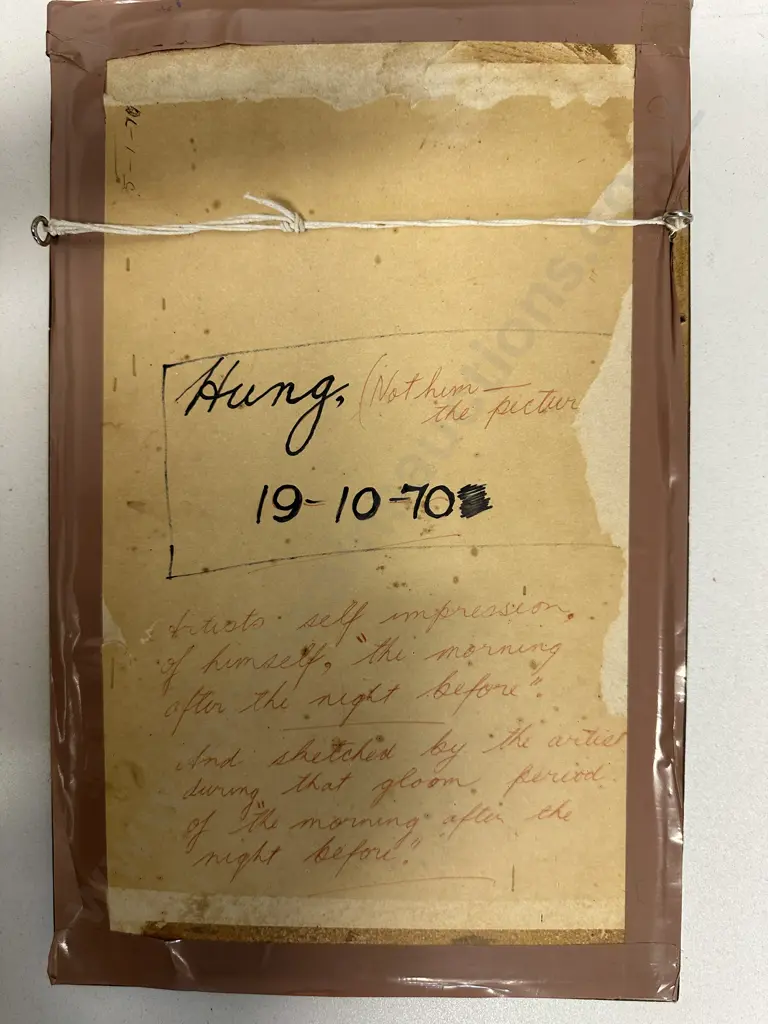 Hung, (Not him —
the pictur
19-10-70
Artists self impression,
of himself, "the morning
after the night before".
And sketched by the artist
during that gloom period
of "the morning after the
night before."